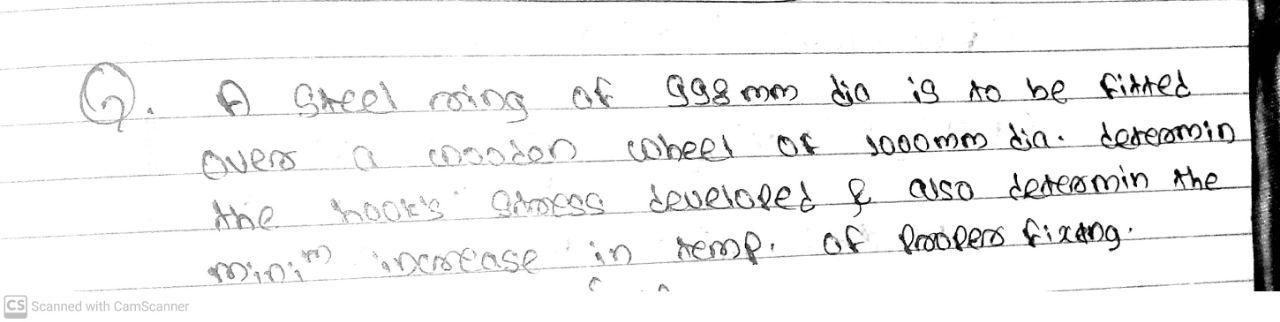 Q. A Steel ring of 998 mm dia is to be fitted
over a wooden wheel of 1000mm dia. determin
the hook's stress developed & also determin the
minim increase in temp. of Proper fixing.
CS Scanned with CamScanner